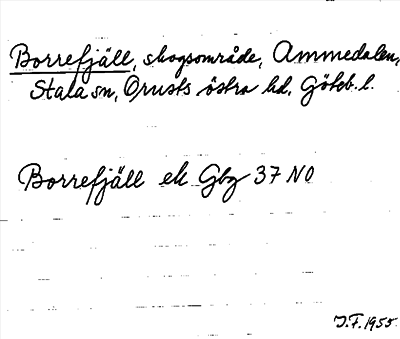 Borrefjäll, skogsområde, Ammedalen,
Stala sn, Orusts östra hd, Göteb. l.
Borrefjäll ek Gbg 37 NO
J.F. 1955.